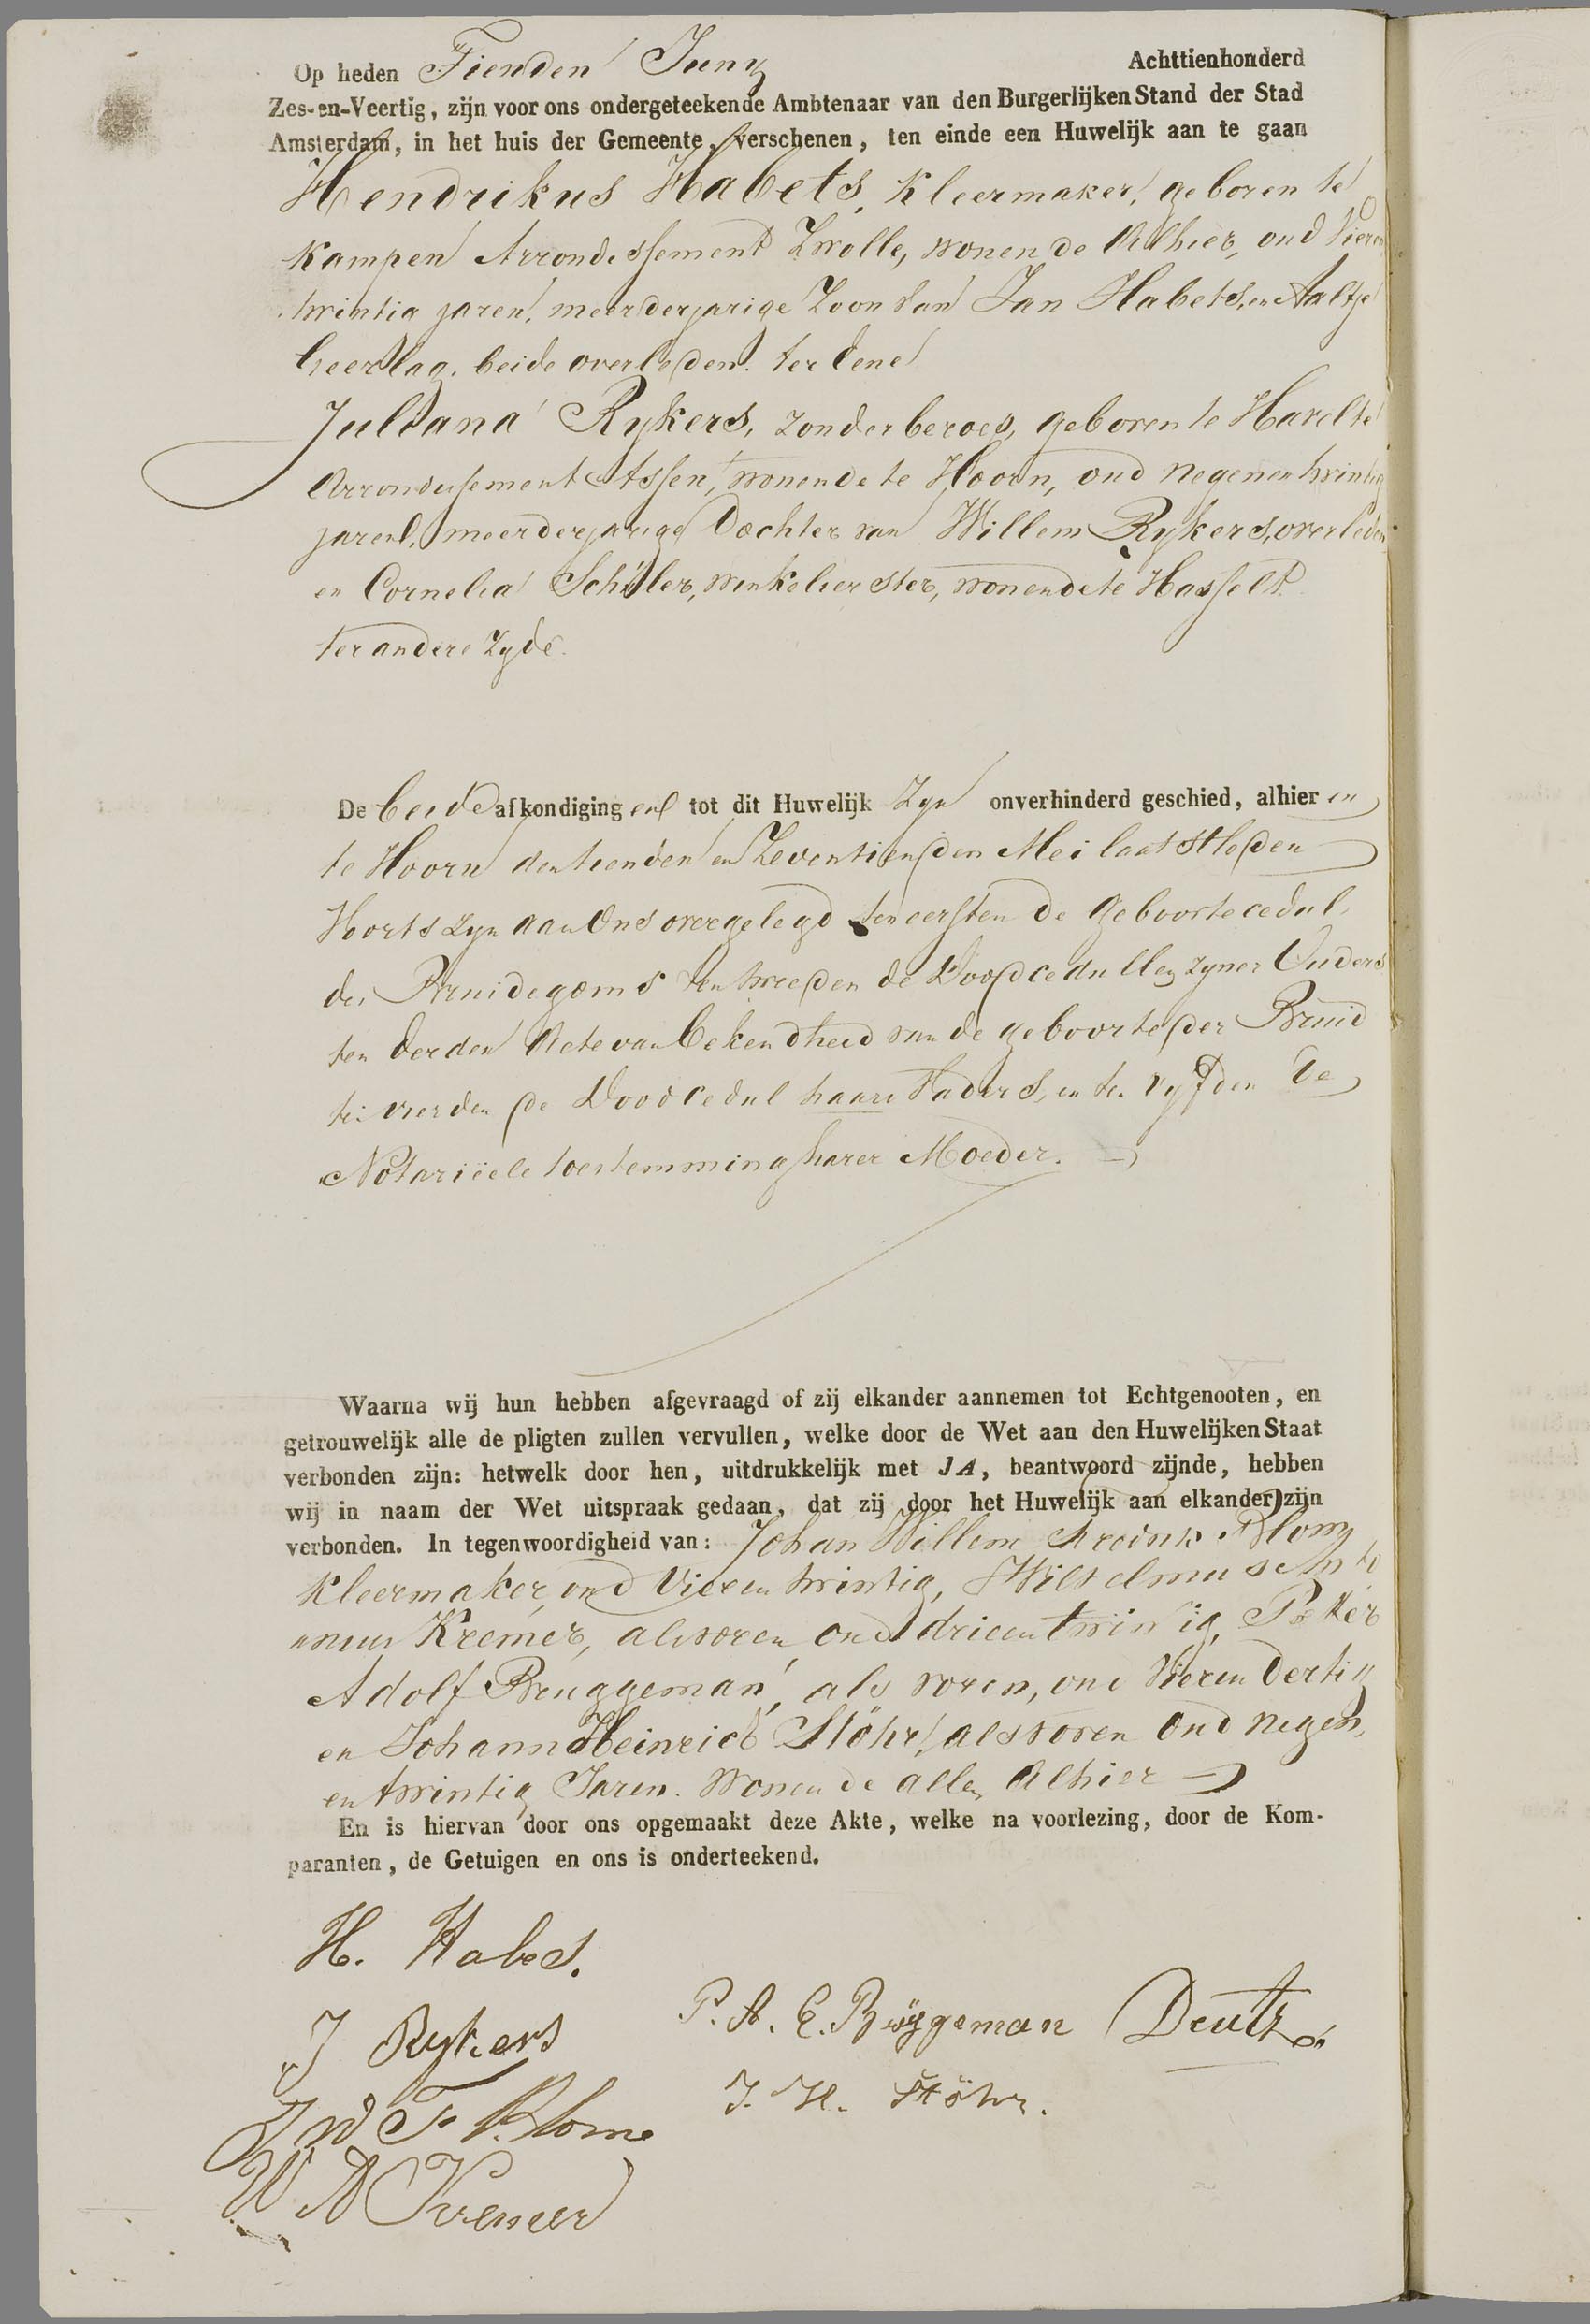 Op heden Tienden Juny Achttienhonderd
Zes-en-Veertig, zijn voor ons ondergeteekende Ambtenaar van den Burgerlijken Stand der Stad
Amsterdam, in het huis der Gemeente, verschenen, ten einde een Huwelijk aan te gaan
Hendrikus Habets, Kleermaker, geboren te
Kampen Arrondissement Zwolle, wonende Alhier, oud Vieren
twintig jaren, meerderjarige Zoon van Jan Habets, en Aaltje
beide overleden. ter Eene
Juliana Rykers, zonder beroep, geboren te Havelte
Arrondissement Assen, wonende te Hoorn, oud negenentwintig
jaren, meerderjarige Dochter van Willem Rykers, overleden
en Cornelia Schiler, winkelierster, wonende te Hasselt
ter andere Zyde.
De beide afkondiging en tot dit Huwelijk Zyn onverhinderd geschied, alhier en
te Hoorn den tienden en Zeventienden Mei laatstleden
Voorts zyn aan Ons overgelegd ten eersten de Geboortecedul
des Bruidegoms ten tweeden de Doodcedullen zyner Ouders
ten derden Acte van bekendheid van de geboorte der Bruid
ten vierden de Doodcedul haars Vaders, en te. vyfden De
Notariëele toestemming harer Moeder.
Waarna wij hun hebben afgevraagd of zij elkander aannemen tot Echtgenooten, en
getrouwelijk alle de pligten zullen vervullen, welke door de Wet aan den Huwelijken Staat
verbonden zijn: hetwelk door hen, uitdrukkelijk met JA, beantwoord zijnde, hebben
wij in naam der Wet uitspraak gedaan, dat zij door het Huwelijk aan elkander zijn
verbonden. In tegenwoordigheid van: Johan Willem Blom
Kleermaker, oud Vierentwintig, Wilhelmus
Kremer, als voren oud drieentwintig, Peter
Adolf Bruggeman, als voren, oud Vierendertig
en Johann Heinrich Stöhr, als voren Oud negen,
entwintig Jaren. Wonende allen Alhier
En is hiervan door ons opgemaakt deze Akte, welke na voorlezing, door de Kom-
paranten, de Getuigen en ons is onderteekend.
H. Habes.
J Rykers
P. A. E. Brüggeman Deutz
J W F Blome
J. H. Stöhr.
W A Kremer